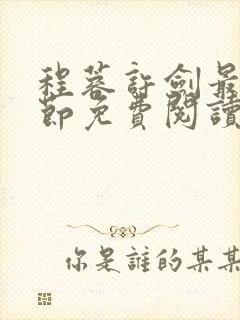 程蓉許劍最
節免費閱讀
你是誰的某某